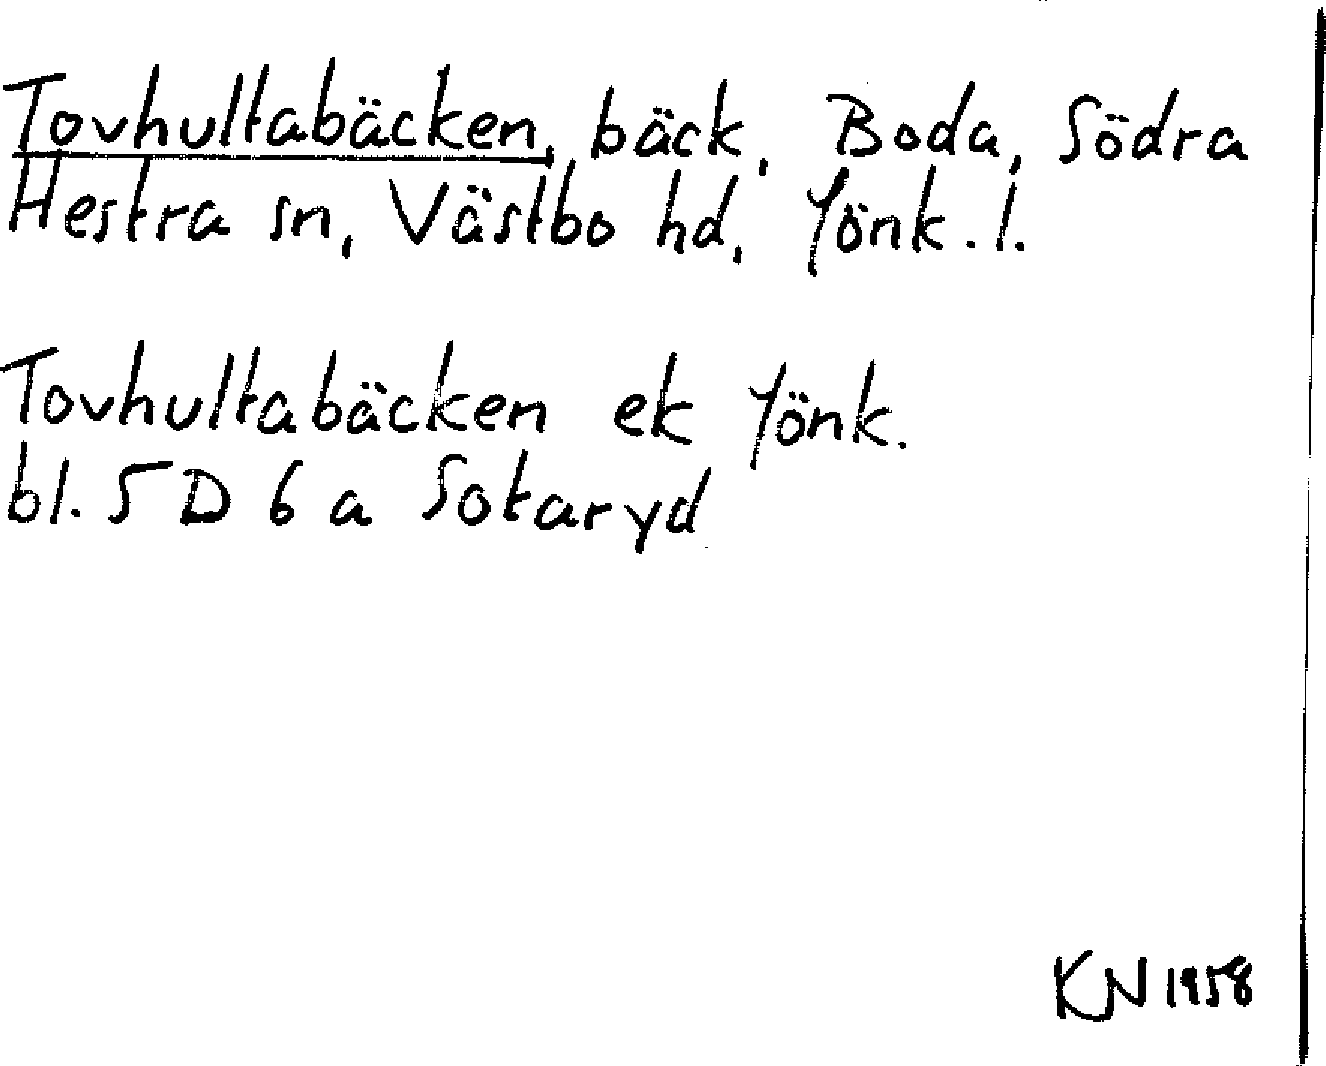 Tovhultabäcken, bäck, Boda, Södra
Hestra sn, Västbo hd, Jönk. l.
Tovhultabäcken ek Jönk.
bl. 5 D 6 a Sotaryd
KN 1958